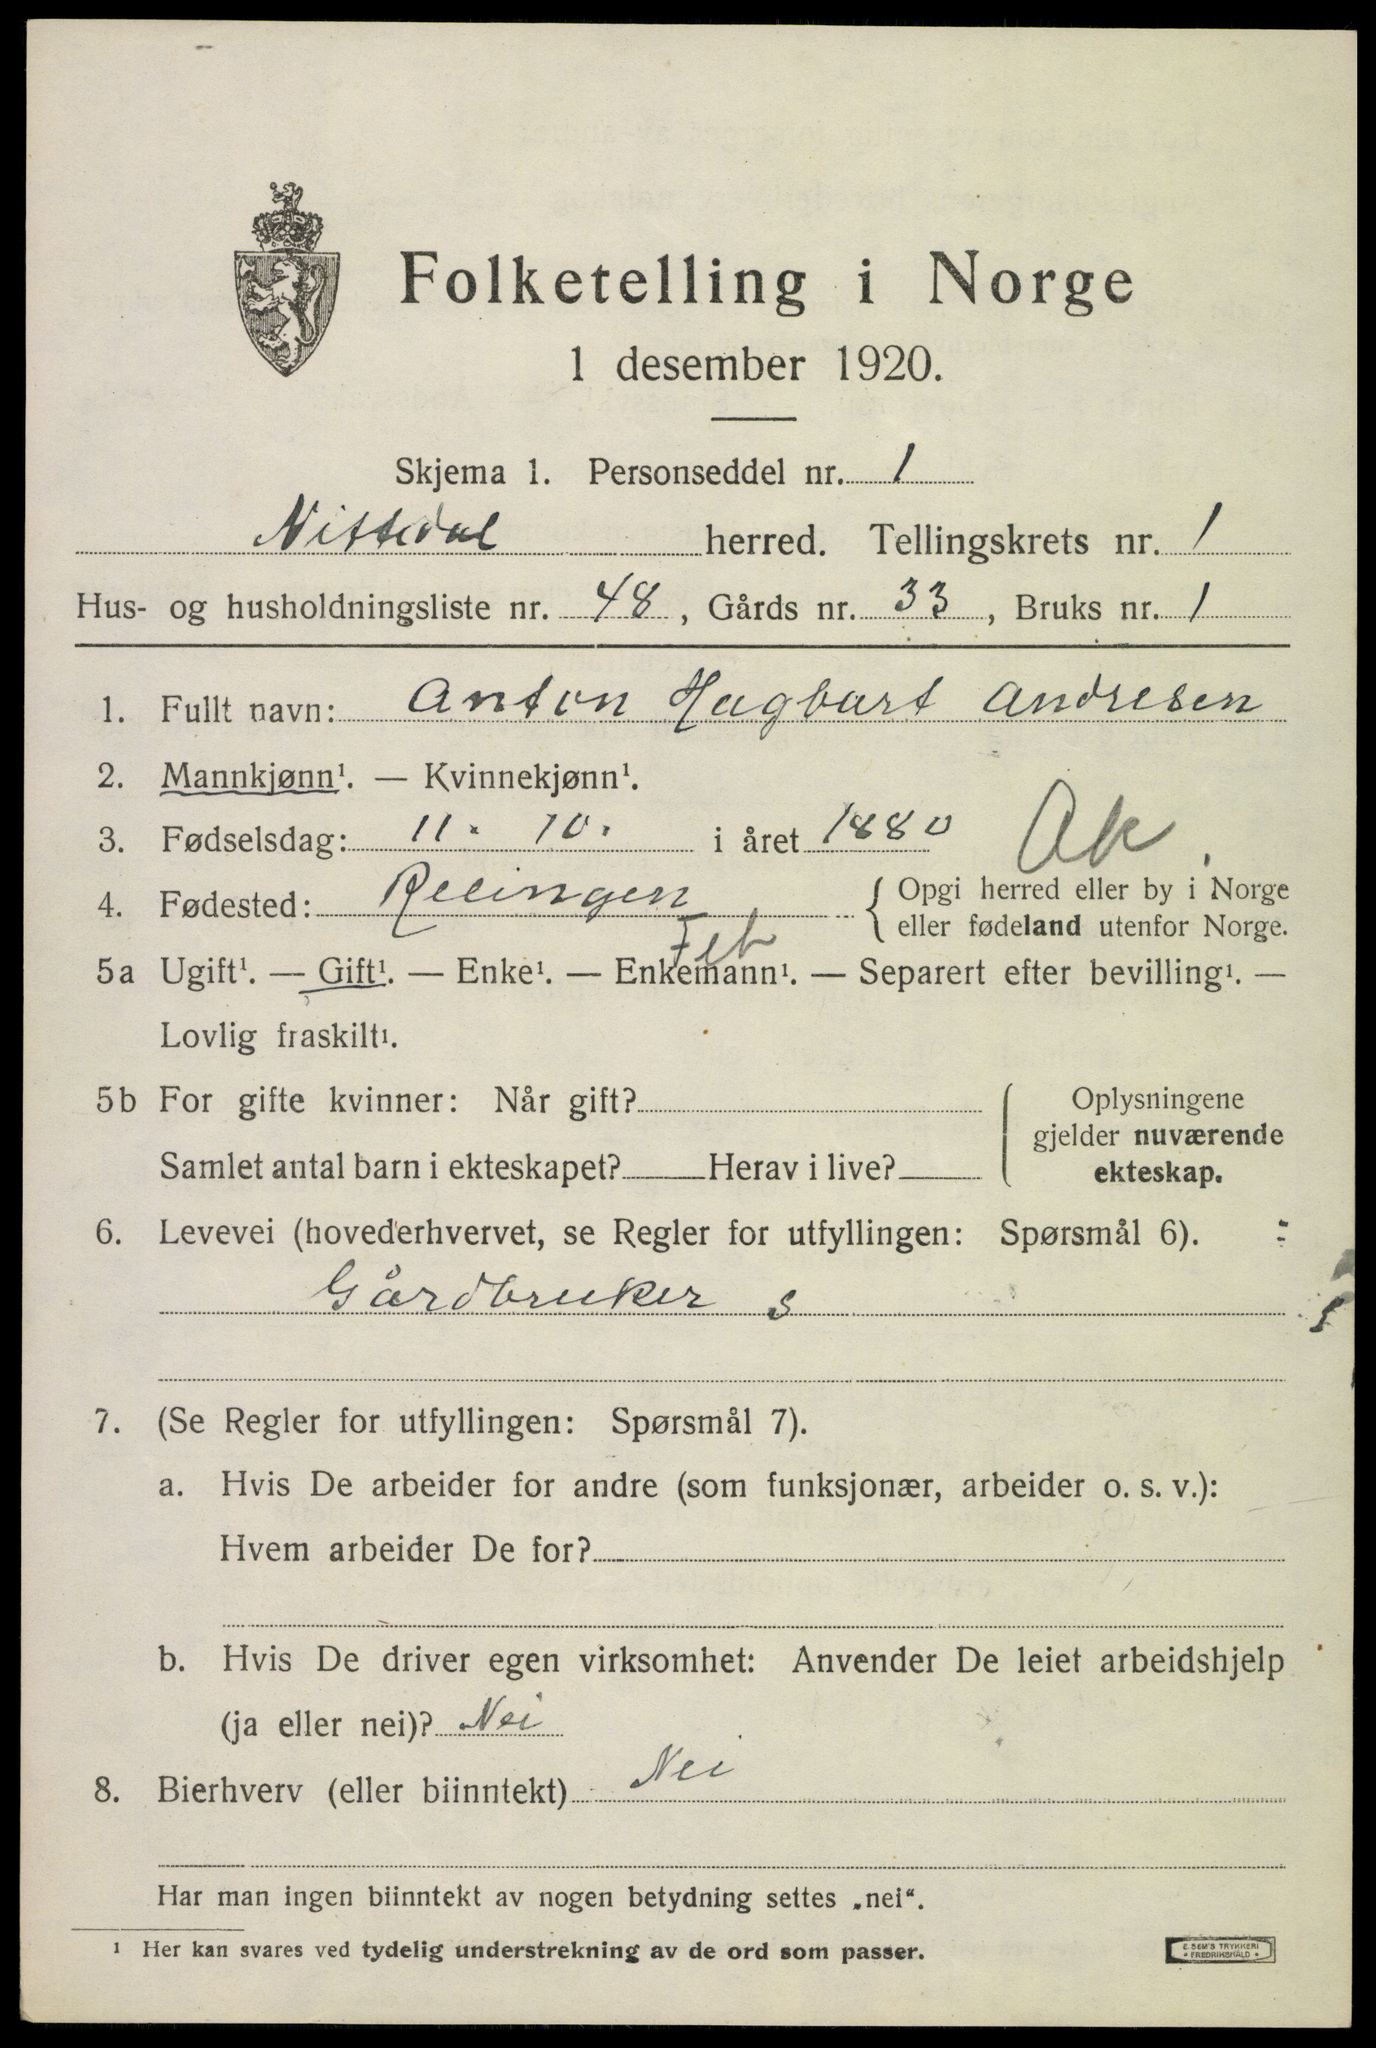 Folketelling i Norge
1 desember 1920.
Skjema 1. Personseddel nr. 1
Nittedal herred. Tellingskrets nr. 1
Hus- og husholdningsliste nr. 48, Gårds nr. 33, Bruks nr. 1
1. Fullt navn: Anton Hagbart Andresen
2. Mannkjønn¹. — Kvinnekjønn¹.
3. Fødselsdag: 11. 10. i året 1880 Ak.
4. Fødested: Relingen { Opgi herred eller by i Norge
eller fødeland utenfor Norge.
Feb
5a Ugift¹. — Gift¹. — Enke¹. — Enkemann¹. — Separert efter bevilling¹. —
Lovlig fraskilt¹.
5b For gifte kvinner: Når gift?
Samlet antal barn i ekteskapet? Herav i live?
( Oplysningene
gjelder nuværende
ekteskap.
6. Levevei (hovederhvervet, se Regler for utfyllingen: Spørsmål 6).
Gårdbruker s
7. (Se Regler for utfyllingen: Spørsmål 7).
a. Hvis De arbeider for andre (som funksjonær, arbeider o. s. v.):
Hvem arbeider De for?
b. Hvis De driver egen virksomhet: Anvender De leiet arbeidshjelp
(ja eller nei)? Nei
8. Bierhverv (eller biinntekt) Nei
Har man ingen biinntekt av nogen betydning settes „nei“.
¹ Her kan svares ved tydelig understrekning av de ord som passer.
E. SEM'S TRYKKERI
• FREDRIKSHALD •